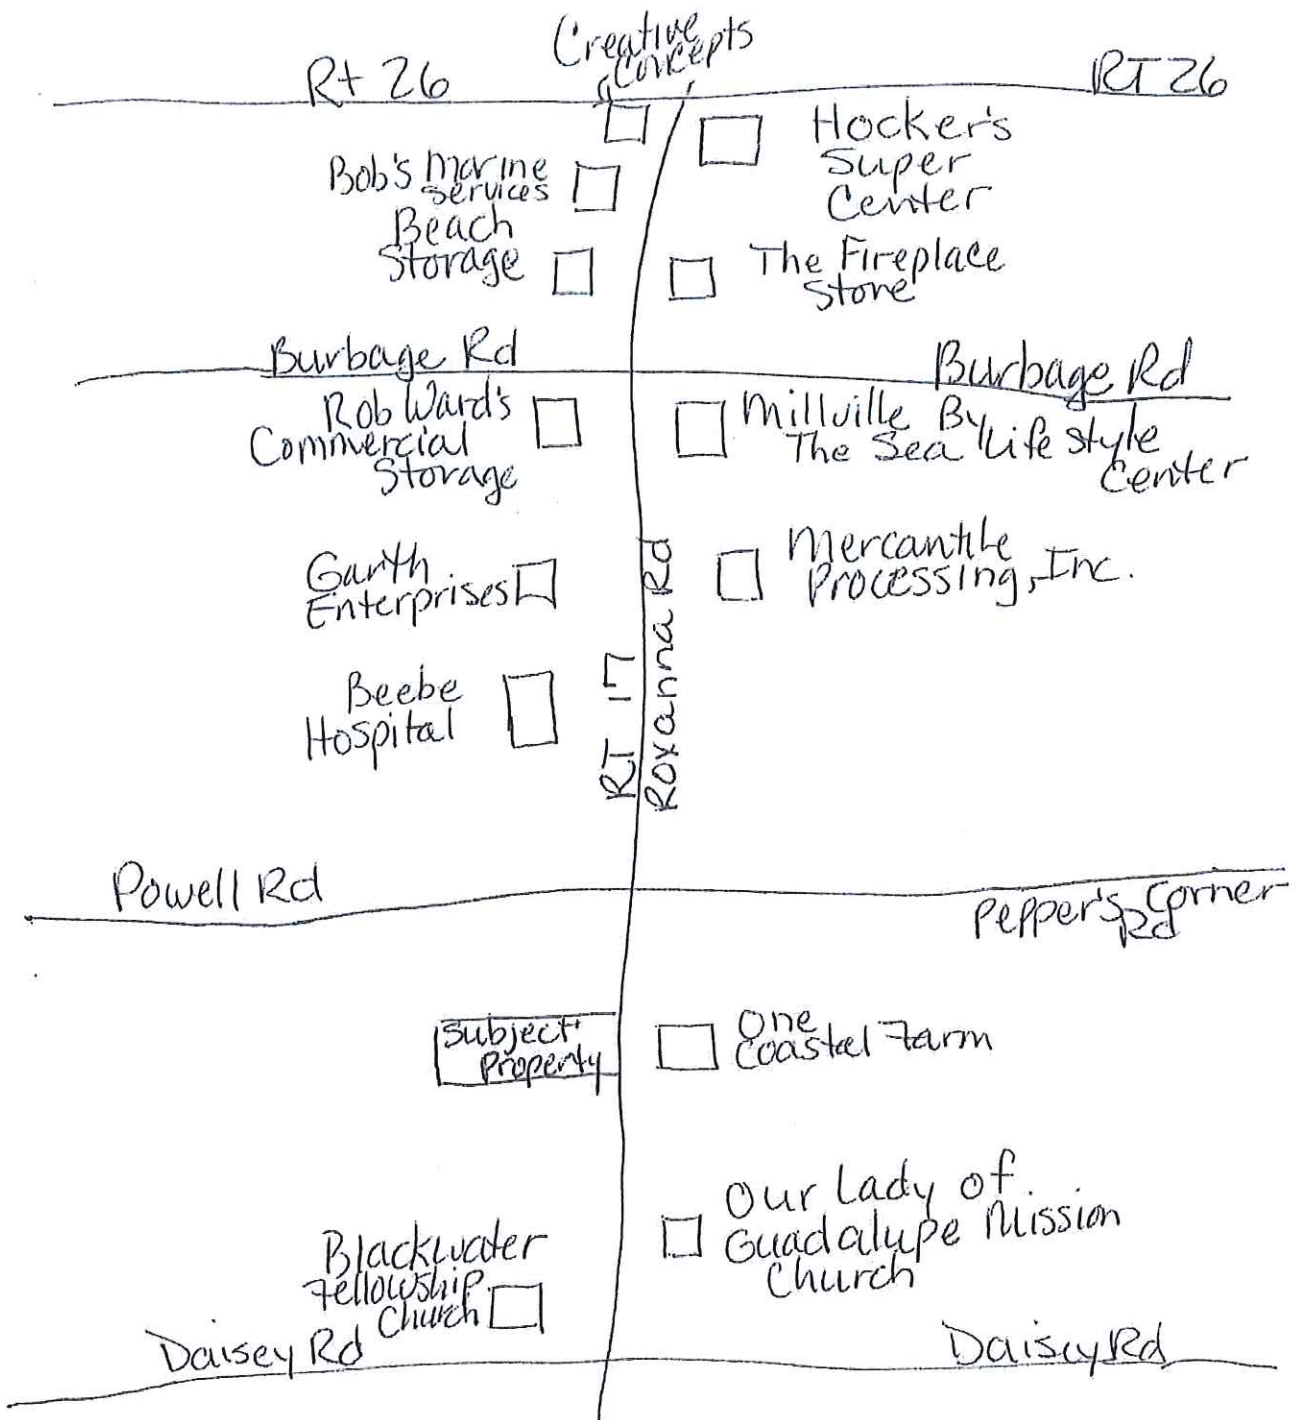 Creative
Concepts
Rt 26
RT 26
Hocker's
Super
Center
Bob's Marine
Services
Beach
Storage
The Fireplace
Store
Burbage Rd
Burbage Rd
Rob Ward's
Commercial
Storage
Millville By
The Sea Lifestyle
Center
Garth
Enterprises
Mercantile
Processing, Inc.
Beebe
Hospital
RT 17
Roxanna Rd
Powell Rd
Pepper's Corner
Rd
Subject
Property
One
Coastal Farm
Our Lady of
Guadalupe Mission
Church
Blackwater
Fellowship
Church
Daisey Rd
Daisey Rd